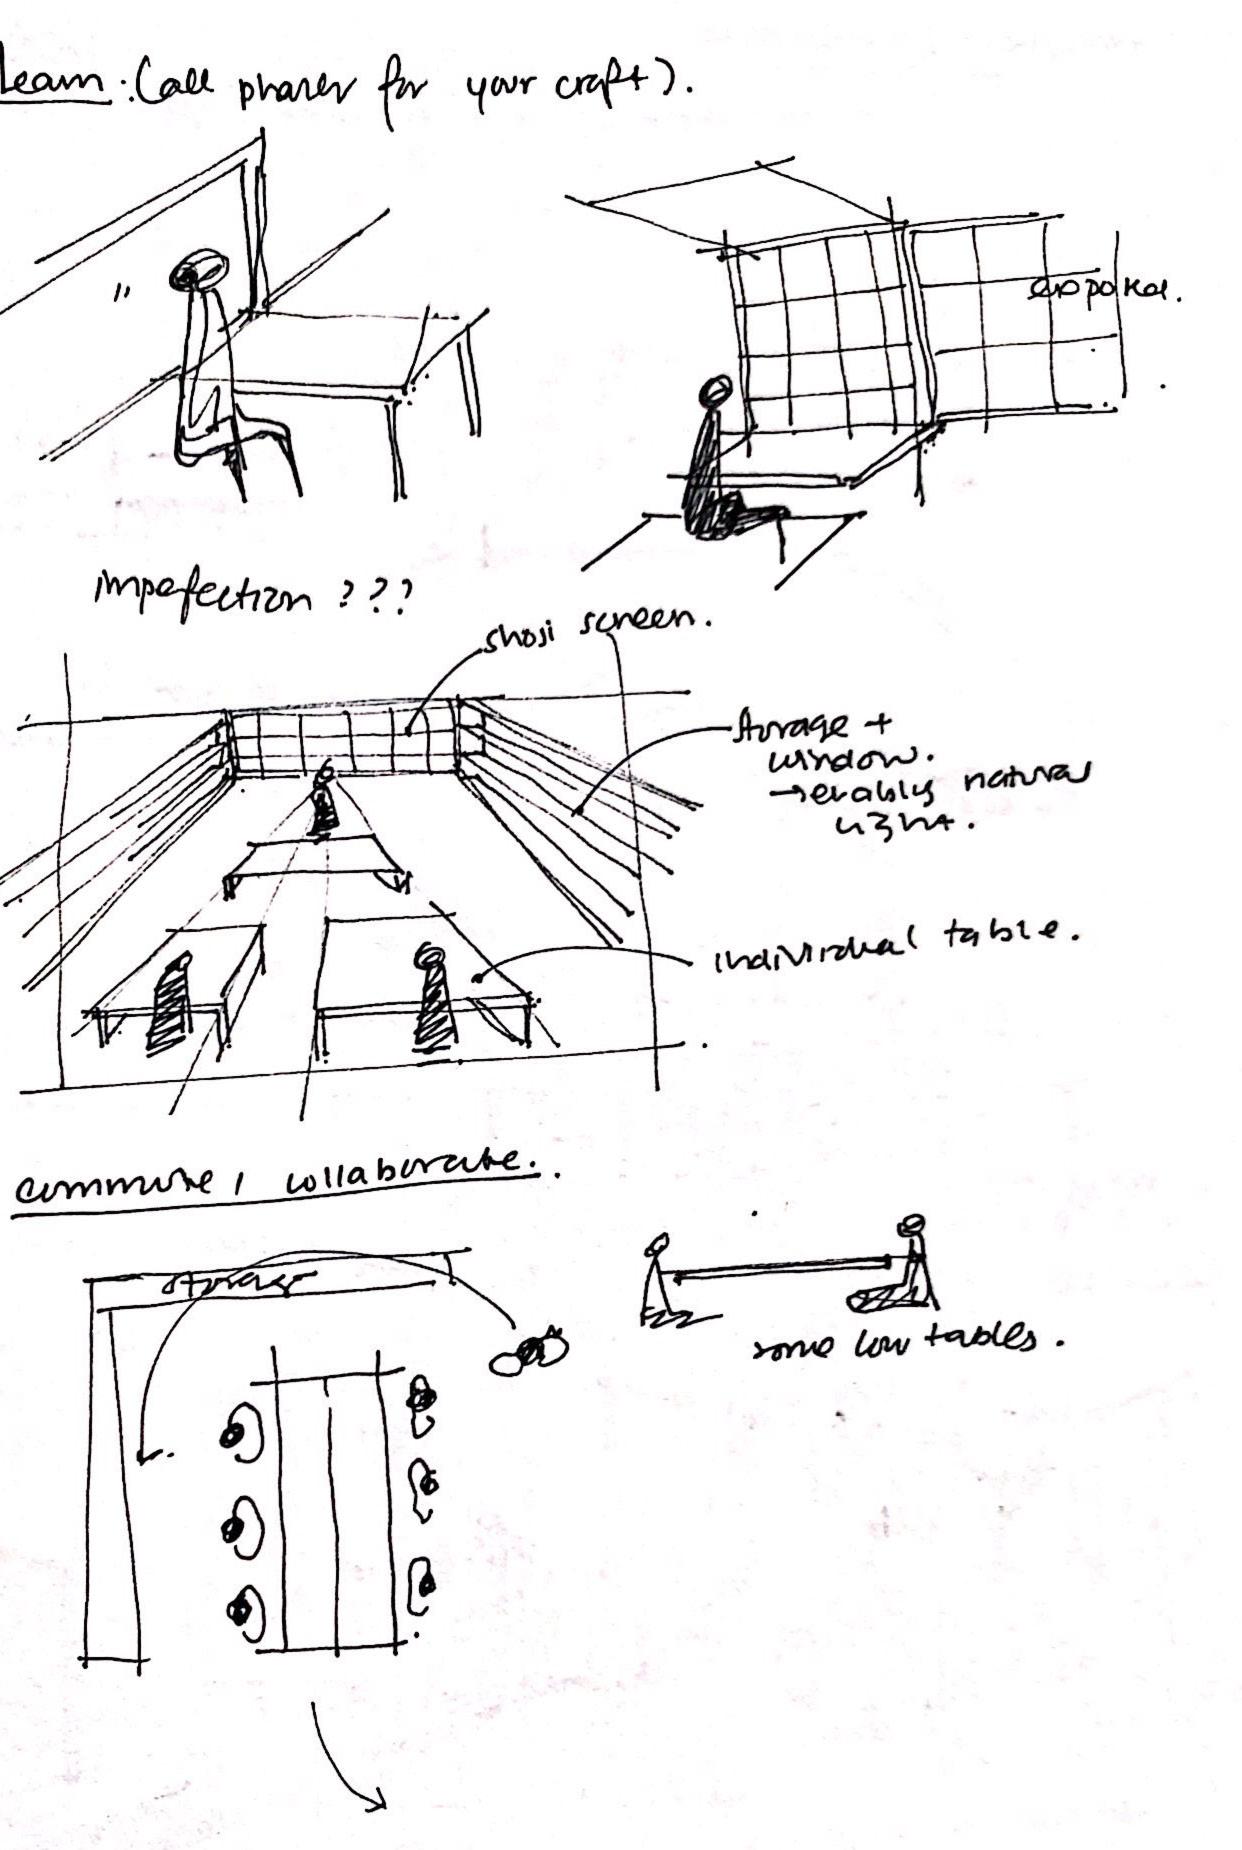 Learn : (all phases for your craft).
imperfection ???
shoji screen.
storage +
window.
→ enables natural
light.
individual table.
commune, collaborate.
storage
some low tables.